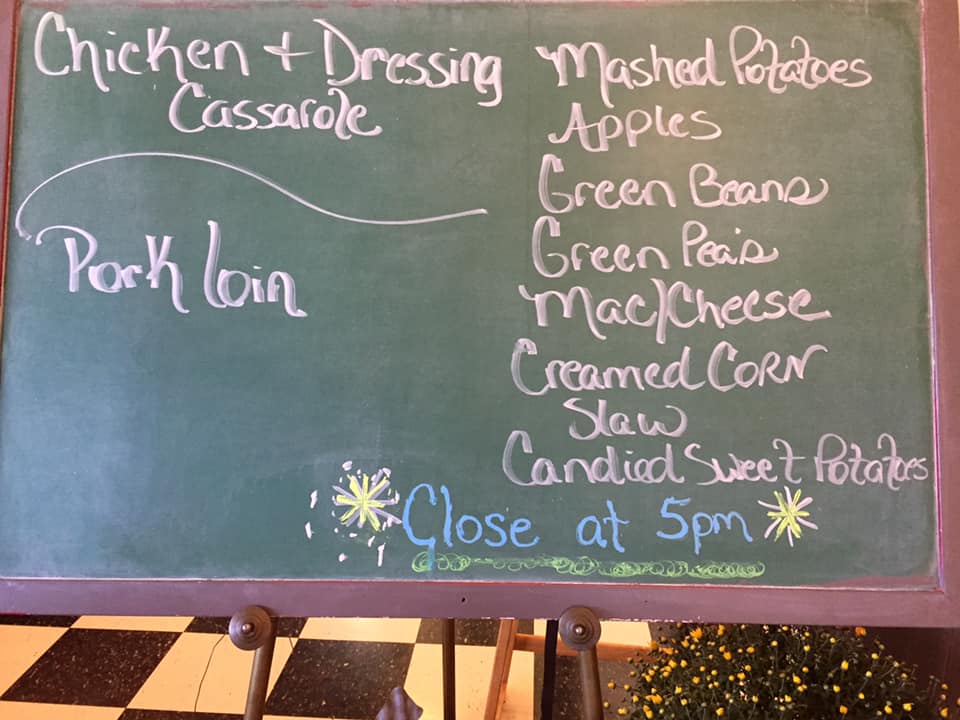 Chicken + Dressing
Cassarole
Pork loin
Mashed Potatoes
Apples
Green Beans
Green Pea's
Mac/Cheese
Creamed CORN
Slaw
Candied Sweet Potatoes
Close at 5pm